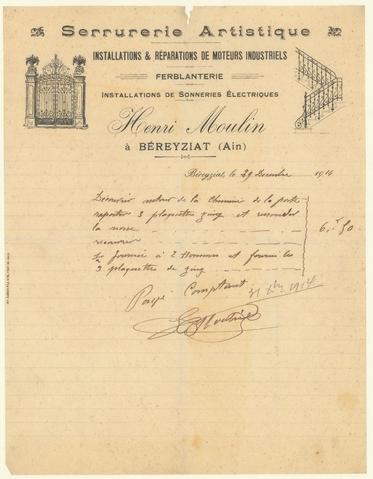 Serrurerie Artistique
INSTALLATIONS & RÉPARATIONS DE MOTEURS INDUSTRIELS
FERBLANTERIE
INSTALLATIONS DE SONNERIES ÉLECTRIQUES
Henri Moulin
à BÉREYZIAT (Ain)
Béreyziat, le 29 Decembre 1914
autour de la Cheminée de la poste
reporter 3 plaquettes zing et ressouder
la noue 6, 50
recouvrir
journée à 2 hommes et fourni les
3 plaquettes de zing
Payé Comptant 31 1914
H Moulin